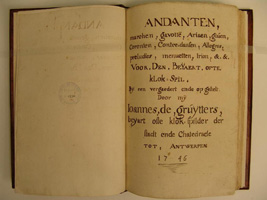 ANDANTEN,
marchen, gavotte, Ariaen, giuen,
Corenten, Contre-dansen, Allegros,
preludien, menuetten, trion, &. &.
VOOR. DEN. BEYAERT. OFTE
KLOK-SPIL.
By een vergaedert ende op gestelt
Door my
Ioannes, de, grüÿtters,
beyart ofte klok spilder der
stadt ende Chatedraele
TOT, ANTWERPEN
1746